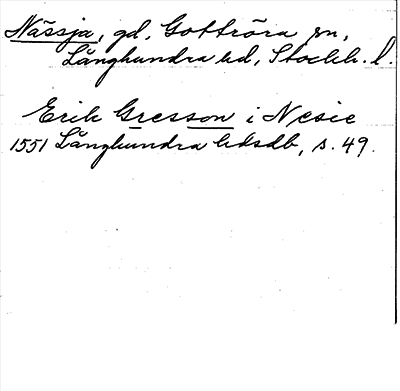 Nässja, gd, Gottröra sn,
Långhundra hd, Stockh. l.
Erik Gresson i Nesie
1551 Långhundra hdsdb, s. 49.